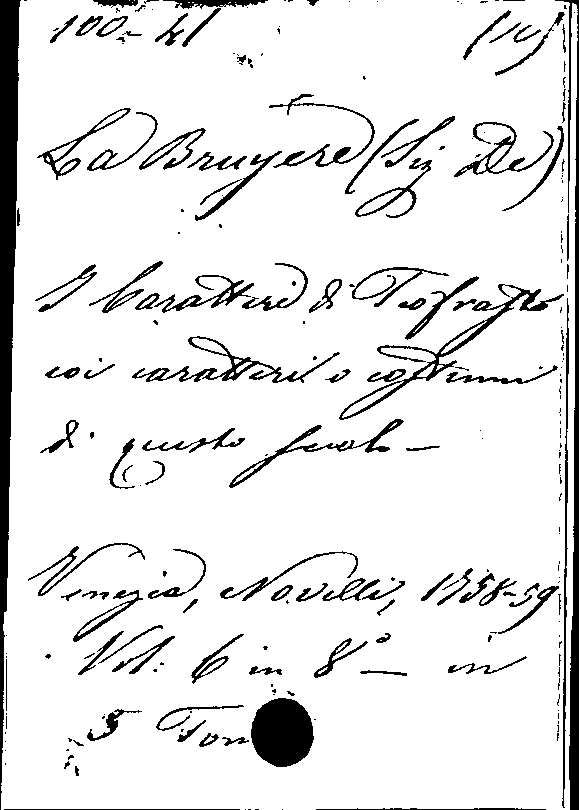 La Bruyere (Sig De)
I Caratteri di Teofrasto
coi caratteri o costumi
di questo secolo -
Venezia, Novelli, 1758-59
Vol: 6 in 8° - in
Tom